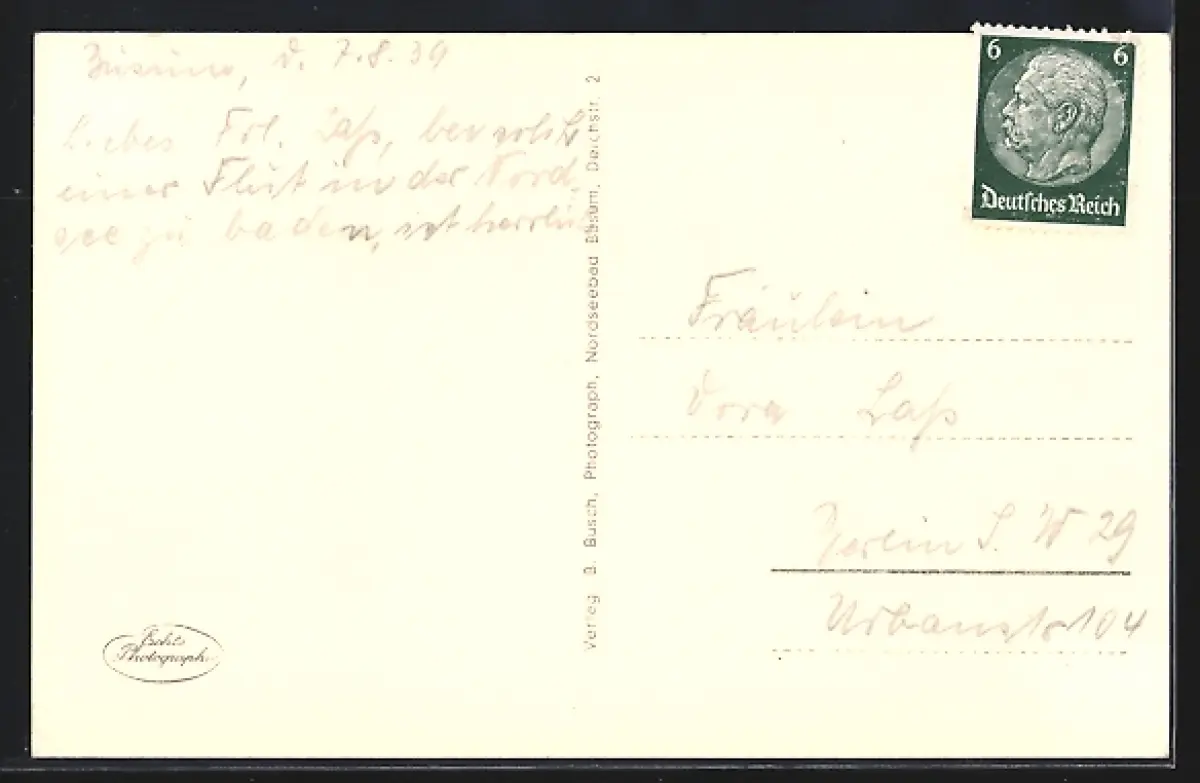 Büsum, d. 7.8.39
Liebes Frl. Laß, bei solch
einer Flut in der Nord-
see zu baden, ist herrlich
Verlag B. Busch, Photograph, Nordseebad Büsum, Deichstr. 2
6 6
Deutsches Reich
Fräulein
Dora Laß
Berlin S.W 29
Urbanstr 104
Echte
Photograph.